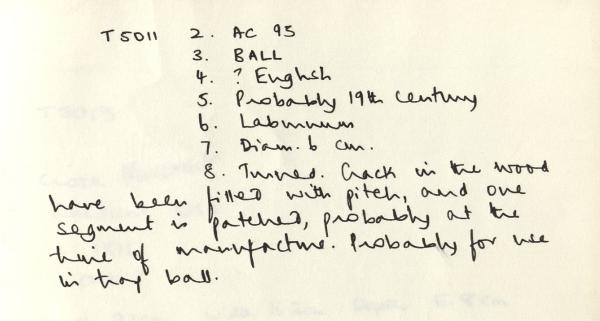 T5011 2. AC 95
3. BALL
4. ? English
5. Probably 19th century
6. Laburnum
7. Diam. 6 cm.
8. Turned. Crack in the wood
have been filled with pitch, and one
segment is patched, probably at the
time of manufacture. Probably for use
in trap ball.